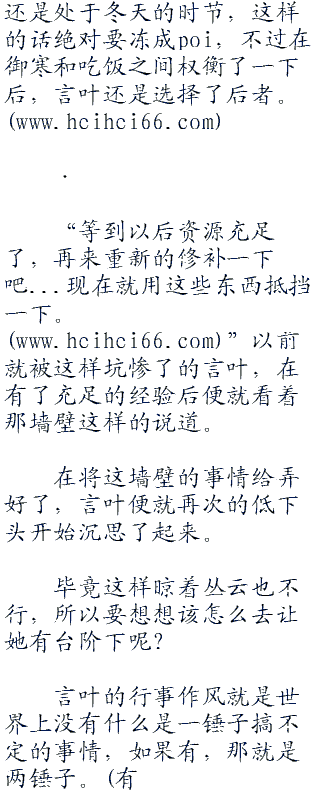 还是处于冬天的时节，这样
的话绝对要冻成poi，不过在
御寒和吃饭之间权衡了一下
后，言叶还是选择了后者。
(www.hcihci66.com)
.
“等到以后资源充足
了，再来重新的修补一下
吧...现在就用这些东西抵挡
一下。
(www.hcihci66.com)”以前
就被这样坑惨了的言叶，在
有了充足的经验后便就看着
那墙壁这样的说道。
在将这墙壁的事情给弄
好了，言叶便就再次的低下
头开始沉思了起来。
毕竟这样晾着丛云也不
行，所以要想想该怎么去让
她有台阶下呢?
言叶的行事作风就是世
界上没有什么是一锤子搞不
定的事情，如果有，那就是
两锤子。(有